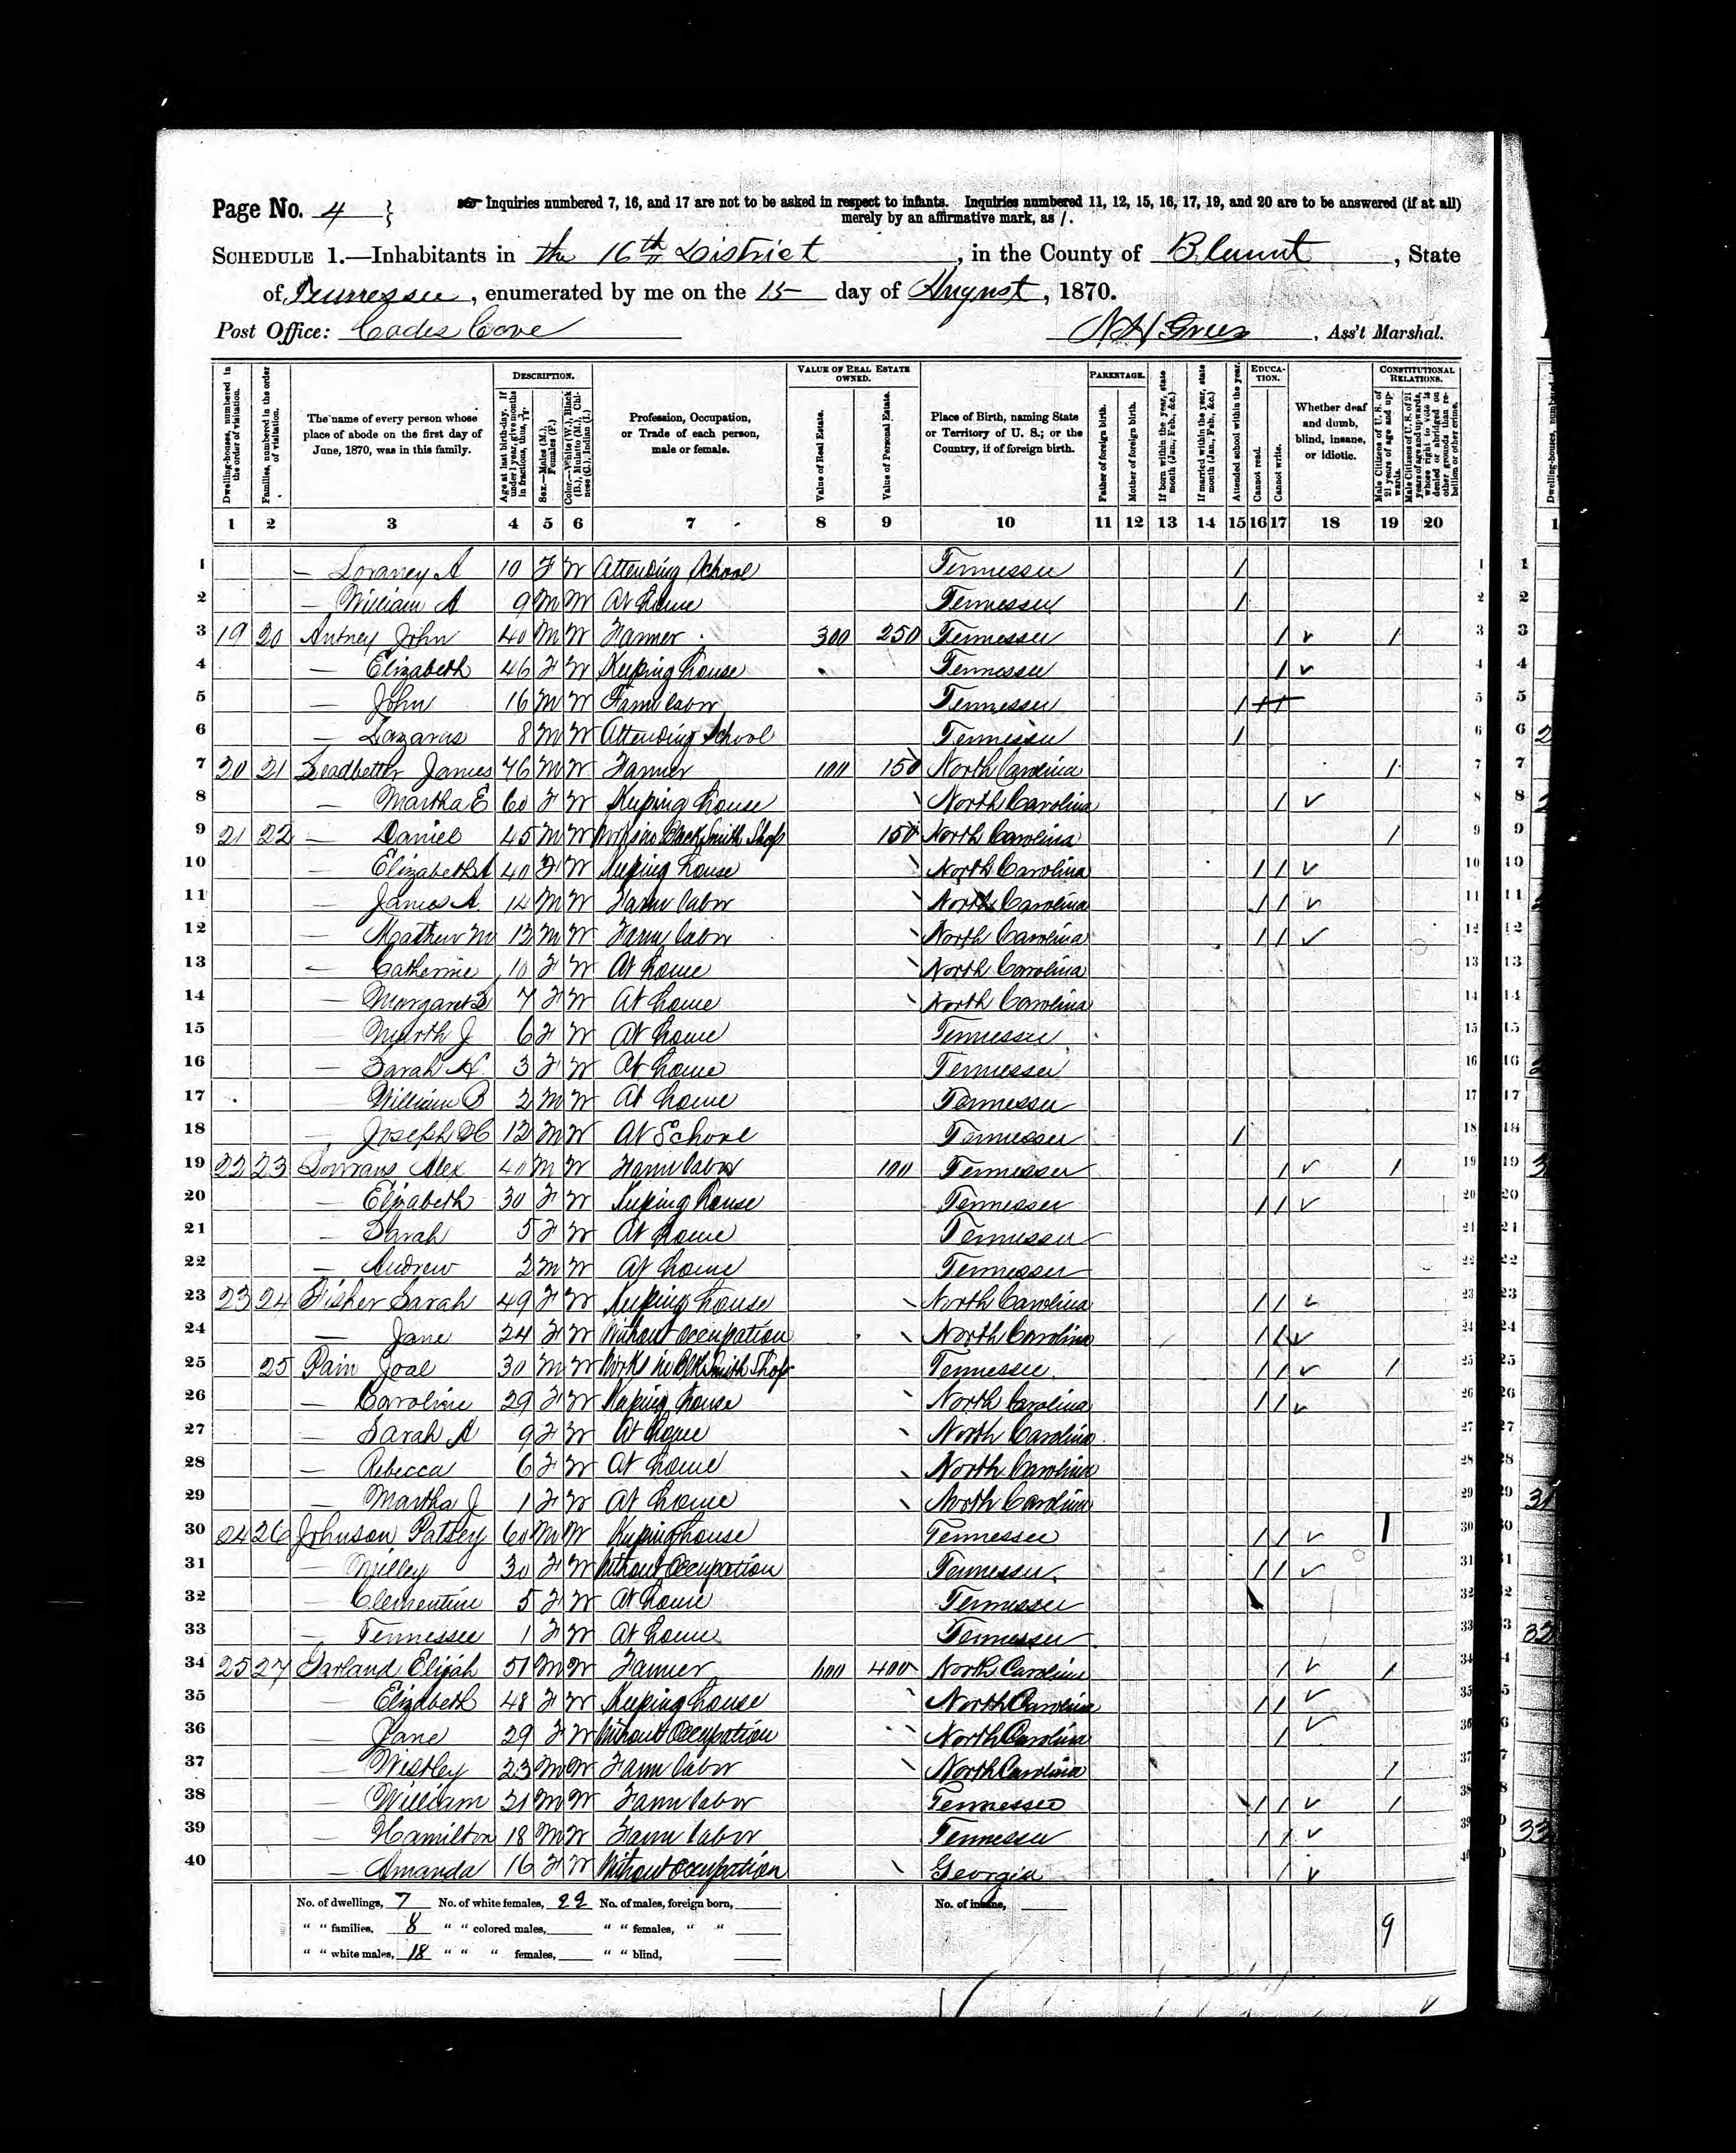 Page No. 4 } Inquiries numbered 7, 16, and 17 are not to be asked in respect to infants. Inquiries numbered 11, 12, 15, 16, 17, 19, and 20 are to be answered (if at all)
merely by an affirmative mark, as /.
SCHEDULE 1.—Inhabitants in the 16th District, in the County of Blount, State
of Tennessee, enumerated by me on the 15 day of August, 1870.
Post Office: Cades Cove, Ass't Marshal.
DESCRIPTION. VALUE OF REAL ESTATE OWNED. PARENTAGE. EDUCATION. CONSTITUTIONAL RELATIONS.
Dwelling-houses, numbered in the order of visitation.
Families, numbered in the order of visitation.
The name of every person whose place of abode on the first day of June, 1870, was in this family.
Age at last birth-day. If under 1 year, give months in fractions, thus,
Sex.—Males (M.), Females (F.)
Color.—White (W.), Black (B.), Mulatto (M.), Chinese (C.), Indian (I.)
Profession, Occupation, or Trade of each person, male or female.
Value of Real Estate.
Value of Personal Estate.
Place of Birth, naming State or Territory of U. S.; or the Country, if of foreign birth.
Father of foreign birth.
Mother of foreign birth.
If born within the year, state month (Jan., Feb., &c.)
If married within the year, state month (Jan., Feb., &c.)
Attended school within the year.
Cannot read.
Cannot write.
Whether deaf and dumb, blind, insane, or idiotic.
Male Citizens of U. S. of 21 years of age and upwards.
Male Citizens of U. S. of 21 years of age and upwards, whose right to vote is denied or abridged on other grounds than rebellion or other crime.
1 2 3 4 5 6 7 8 9 10 11 12 13 14 15 16 17 18 19 20
1 — Loraney A 10 F W Attending School Tennessee /
2 — William A 9 M W At home Tennessee /
3 19 20 John 40 M W Farmer 300 250 Tennessee / ✓ /
4 — Elizabeth 46 F W Keeping house Tennessee / ✓
5 — John 16 M W Farm labor Tennessee /
6 — Lazarus 8 M W Attending School Tennessee /
7 20 21 Leadbetter James 76 M W Farmer 100 150 North Carolina /
8 — Martha E 60 F W Keeping house North Carolina / ✓
9 21 22 — Daniel 45 M W Works in Black Smith Shop 150 North Carolina /
10 — Elizabeth A 40 F W Keeping house North Carolina / / ✓
11 — James A. 14 M W Farm labor North Carolina / / ✓
12 — Mathew M 12 M W Farm labor North Carolina / / ✓
13 — Catherine 10 F W At home North Carolina
14 — Margaret 7 F W At home North Carolina
15 — Marth J 6 F W At home Tennessee
16 — Sarah 3 F W At home Tennessee
17 — William B 2 M W At home Tennessee
18 — Joseph 12 M W At School Tennessee /
19 22 23 Alex 40 M W Farm labor 100 Tennessee / ✓ /
20 — Elizabeth 30 F W Keeping house Tennessee / / ✓
21 — Sarah 5 F W At home Tennessee
22 — Andrew 2 M W At home Tennessee
23 23 24 Fisher Sarah 49 F W Keeping house North Carolina / / ✓
24 — Jane 24 F W Without occupation North Carolina / / ✓
25 25 Pain Joal 30 M W Works in Blk Smith Shop Tennessee / / ✓ /
26 — Caroline 29 F W Keeping house North Carolina / / ✓
27 — Sarah A 9 F W At home North Carolina
28 — Rebecca 6 F W At home North Carolina
29 — Martha J 1 F W At home North Carolina
30 24 26 Johnson Patsey 60 M W Keeping house Tennessee / / ✓ /
31 — Milley 30 F W Without Occupation Tennessee / / ✓
32 — Clementine 5 F W At home Tennessee
33 — Tennessee 1 F W At home Tennessee
34 25 27 Garland Elijah 51 M W Farmer 600 400 North Carolina / ✓ /
35 — Elizabeth 48 F W Keeping house North Carolina / / ✓
36 — Jane 29 F W Without Occupation North Carolina / ✓
37 — Westley 23 M W Farm labor North Carolina /
38 — William 21 M W Farm labor Tennessee / / ✓ /
39 — Hamilton 18 M W Farm labor Tennessee / / ✓
40 — Amanda 16 F W Without occupation Georgia / ✓
No. of dwellings, 7 No. of white females, 22 No. of males, foreign born, No. of insane,
" " families, 8 " " colored males, " " females, " " 9
" " white males, 18 " " " females, " " blind,